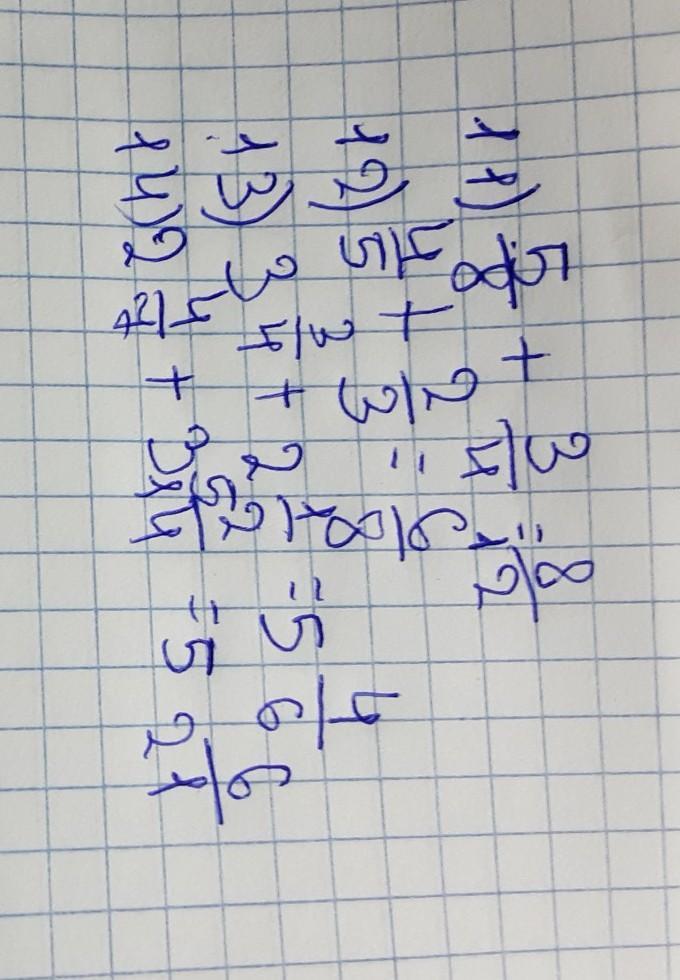 11) 5/8 + 3/4 = 8/12
12) 4/5 + 2/3 = 6/8
13) 3 3/4 + 2 1/2 = 5 4/6
14) 2 4/7 + 3 5/14 = 5 6/21